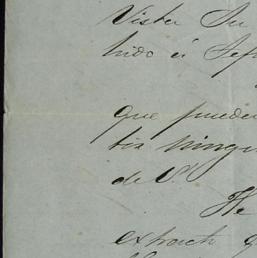 Vista Su
hido á Sefr
que pueden
tis ningu
de V.
He
extracto q